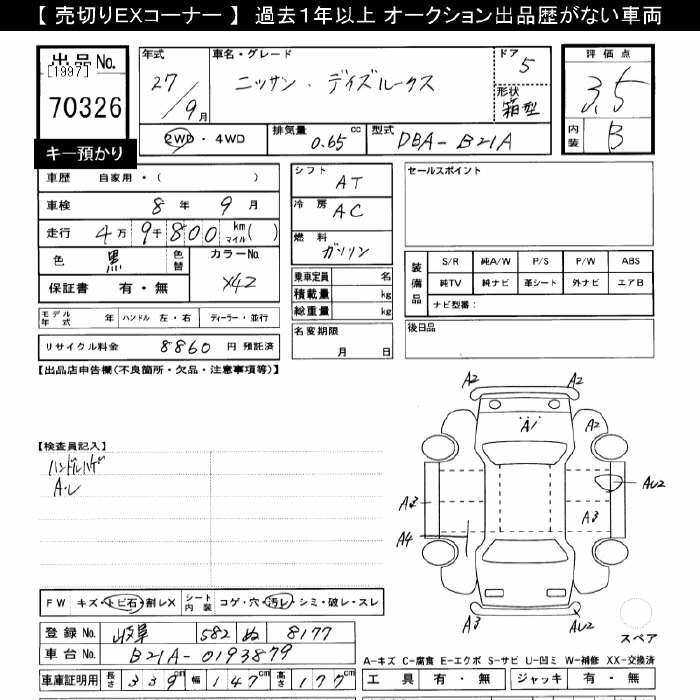 【 売切りEXコーナー 】 過去１年以上 オークション出品歴がない車両
出品No.
[1997]
70326
キー預かり
年式
27/9月
車名・グレード
ニッサン・デイズルークス
ドア
5
形状
箱型
評価点
3.5
内装
B
2WD・4WD
排気量 0.65 cc
型式 DBA-B21A
車歴 自家用・( )
車検 8年 9月
走行 4万9千800 km マイル( )
色 黒 色替
カラーNo. X42
保証書 有・無
モデル年式 年 ハンドル 左・右 ディーラー・並行
リサイクル料金 8860円 預託済
シフト AT
冷房 AC
燃料 ガソリン
乗車定員 名
積載量 kg
総重量 kg
名変期限
月 日
セールスポイント
装備品
S/R 純A/W P/S P/W ABS
純TV 純ナビ 革シート 外ナビ エアB
ナビ型番：
後日品
【出品店申告欄(不良箇所・欠品・注意事項等)】
【検査員記入】
ハンドルハゲ
A・レ
A2 A2
A1 A2
AU2
A3 A3
A4
A3 AU2
スペア
FW キズ・トビ石・割レX シート内装 コゲ・穴・汚レ・シミ・破レ・スレ
登録No. 岐阜 582 ぬ 8177
車台No. B21A-0193879
車庫証明用 長さ 339cm 幅 147cm 高さ 177cm
A-キズ C-腐食 E-エクボ S-サビ U-凹ミ W-補修 XX-交換済
工具 有・無 ジャッキ 有・無